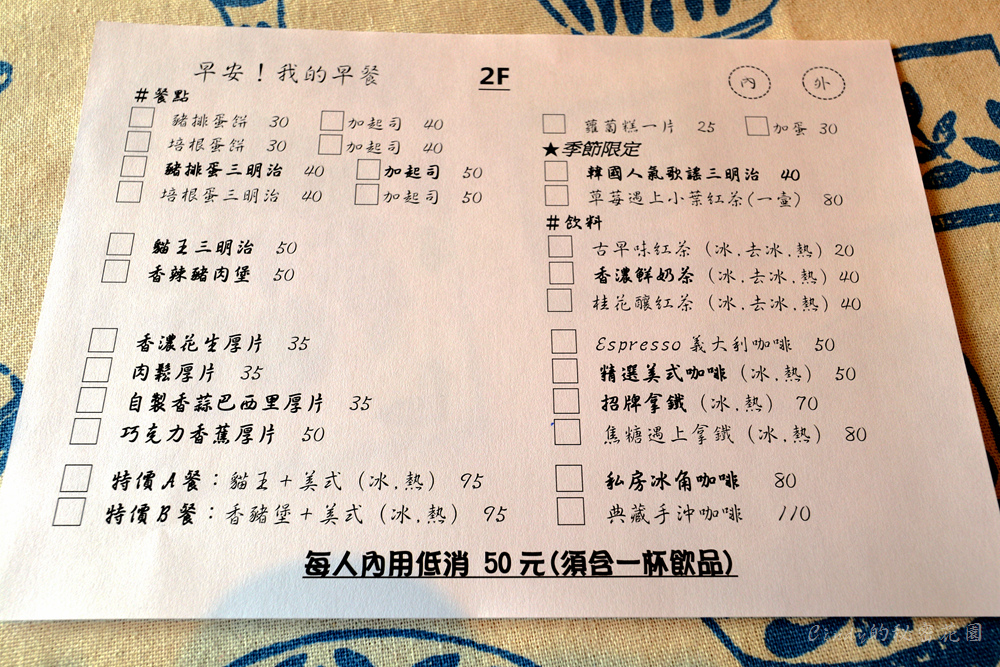 早安！我的早餐
2F
內 外
#餐點
豬排蛋餅 30 加起司 40
培根蛋餅 30 加起司 40
豬排蛋三明治 40 加起司 50
培根蛋三明治 40 加起司 50
貓王三明治 50
香辣豬肉堡 50
香濃花生厚片 35
肉鬆厚片 35
自製香蒜巴西里厚片 35
巧克力香蕉厚片 50
特價A餐：貓王＋美式（冰.熱） 95
特價B餐：香豬堡＋美式（冰.熱） 95
蘿蔔糕一片 25 加蛋 30
★季節限定
韓國人氣歌謠三明治 40
草莓遇上小葉紅茶(一壺) 80
#飲料
古早味紅茶（冰.去冰.熱）20
香濃鮮奶茶（冰.去冰.熱）40
桂花釀紅茶（冰.去冰.熱）40
Espresso義大利咖啡 50
精選美式咖啡（冰.熱） 50
招牌拿鐵（冰.熱） 70
焦糖遇上拿鐵（冰.熱） 80
私房冰角咖啡 80
典藏手沖咖啡 110
每人內用低消 50元(須含一杯飲品)